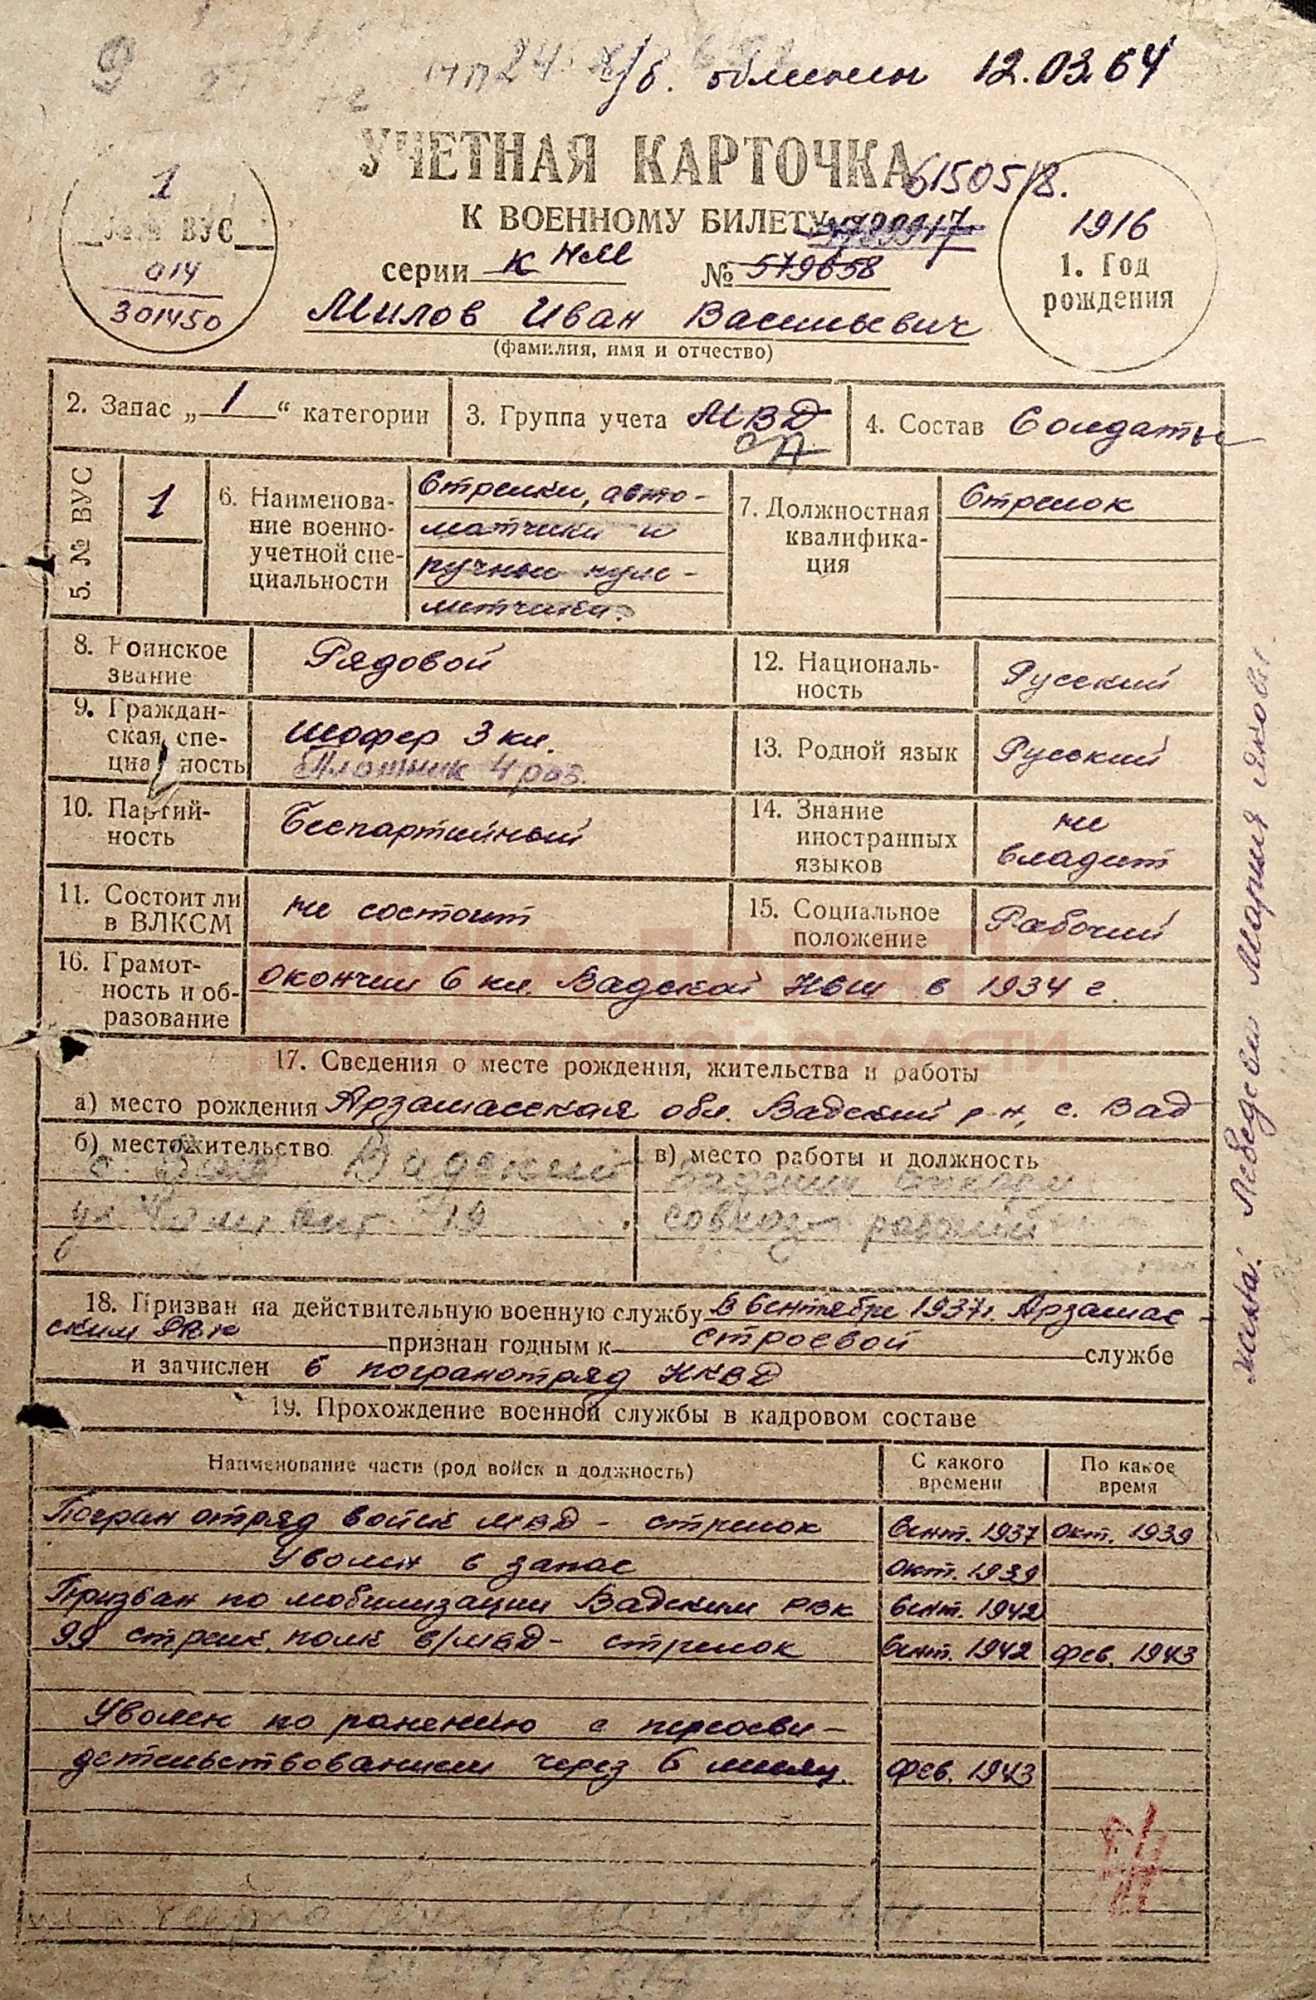 9
обменен 12.03.64
УЧЕТНАЯ КАРТОЧКА
61505/8.
К ВОЕННОМУ БИЛЕТУ
серии К НМ № 579658
Милов Иван Васильевич
(фамилия, имя и отчество)
1
№№ ВУС
014
301450
1916
1. Год
рождения
2. Запас „ 1 “ категории
3. Группа учета МВД
СА
4. Состав Солдаты
5. № ВУС
1
6. Наименова-
ние военно-
учетной спе-
циальности
Стрелки, авто-
матчики и
ручные пуле-
метчики.
7. Должностная
квалифика-
ция
Стрелок
8. Воинское
звание
Рядовой
12. Националь-
ность
Русский
9. Граждан-
ская спе-
циальность
Шофер 3 кл.
Плотник 4 раз.
13. Родной язык
Русский
10. Партий-
ность
Беспартийный
14. Знание
иностранных
языков
не
владеет
11. Состоит ли
в ВЛКСМ
не состоит
15. Социальное
положение
Рабочий
16. Грамот-
ность и об-
разование
окончил 6 кл. Вадской НСШ в 1934 г.
КНИГА ПАМЯТИ
НИЖЕГОРОДСКОЙ ОБЛАСТИ
17. Сведения о месте рождения, жительства и работы
а) место рождения Арзамасская обл. Вадский р-н, с. Вад
б) местожительство
с. Вад Вадский
ул. 19
в) место работы и должность
совхоз рабочий
18. Призван на действительную военную службу в Сентябре 1937г. Арзамас-
ским РВК признан годным к строевой службе
и зачислен в погранотряд НКВД
19. Прохождение военной службы в кадровом составе
Наименование части (род войск и должность)
С какого
времени
По какое
время
Погран отряд войск МВД - стрелок Сент. 1937 окт. 1939
Уволен в запас окт. 1939
Призван по мобилизации Вадским РВК Сент. 1942
99 стрелк. полк в/МВД - стрелок Сент. 1942 фев. 1943
Уволен по ранению с переосви-
детельствованием через 6 месяц. фев. 1943
жена: Лебедева Мария Яковл.